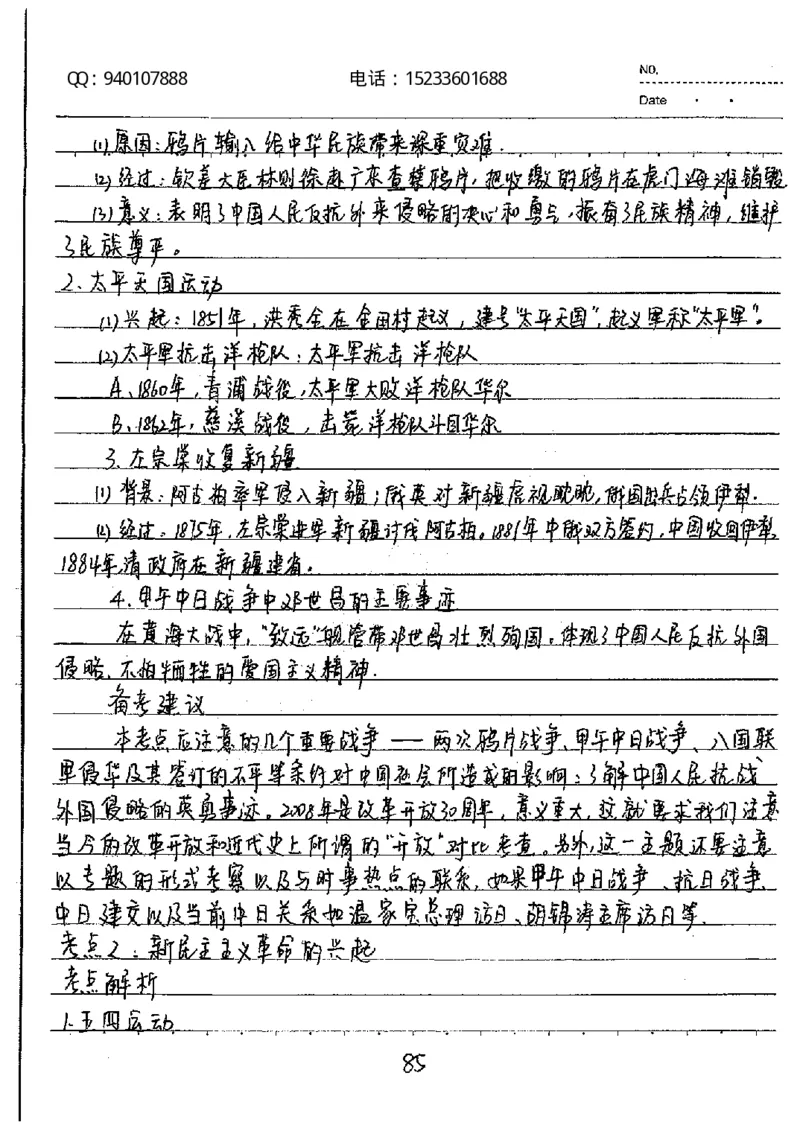 QQ：940107888 电话：15233601688 NO.
Date
(1)原因：鸦片输入给中华民族带来深重灾难.
(2)经过：钦差大臣林则徐赴广东查禁鸦片，把收缴的鸦片在虎门海滩销毁
(3)意义：表明了中国人民反抗外来侵略的决心和勇气，振奋了民族精神，维护
了民族尊严。
2、太平天国运动
(1)兴起：1851年，洪秀全在金田村起义，建号“太平天国”，起义军称“太平军”。
(2)太平军抗击洋枪队：太平军抗击洋枪队
A、1860年，青浦战役，太平军大败洋枪队华尔
B、1862年，慈溪战役，击毙洋枪队头目华尔
3、左宗棠收复新疆
(1)背景：阿古柏率军侵入新疆；俄英对新疆虎视眈眈，俄国出兵占领伊犁.
(2)经过：1875年，左宗棠进军新疆讨伐阿古柏。1881年中俄双方签约，中国收回伊犁，
1884年清政府在新疆建省。
4、甲午中日战争中邓世昌的主要事迹
在黄海大战中，“致远”舰管带邓世昌壮烈殉国。体现了中国人民反抗外国
侵略、不怕牺牲的爱国主义精神.
备考建议
本考点应注意的几个重要战争——两次鸦片战争、甲午中日战争、八国联
军侵华及其签订的不平等条约对中国社会所造成的影响；了解中国人民抗战
外国侵略的英勇事迹。2008年是改革开放30周年，意义重大，这就要求我们注意
当今的改革开放和近代史上所谓的“开放”对比考查。另外，这一主题还要注意
以专题的形式考察以及与时事热点的联系，如果甲午中日战争、抗日战争、
中日建交以及当前中日关系如温家宝总理访日、胡锦涛主席访日等.
考点2：新民主主义革命的兴起
考点解析
1.五四运动
85